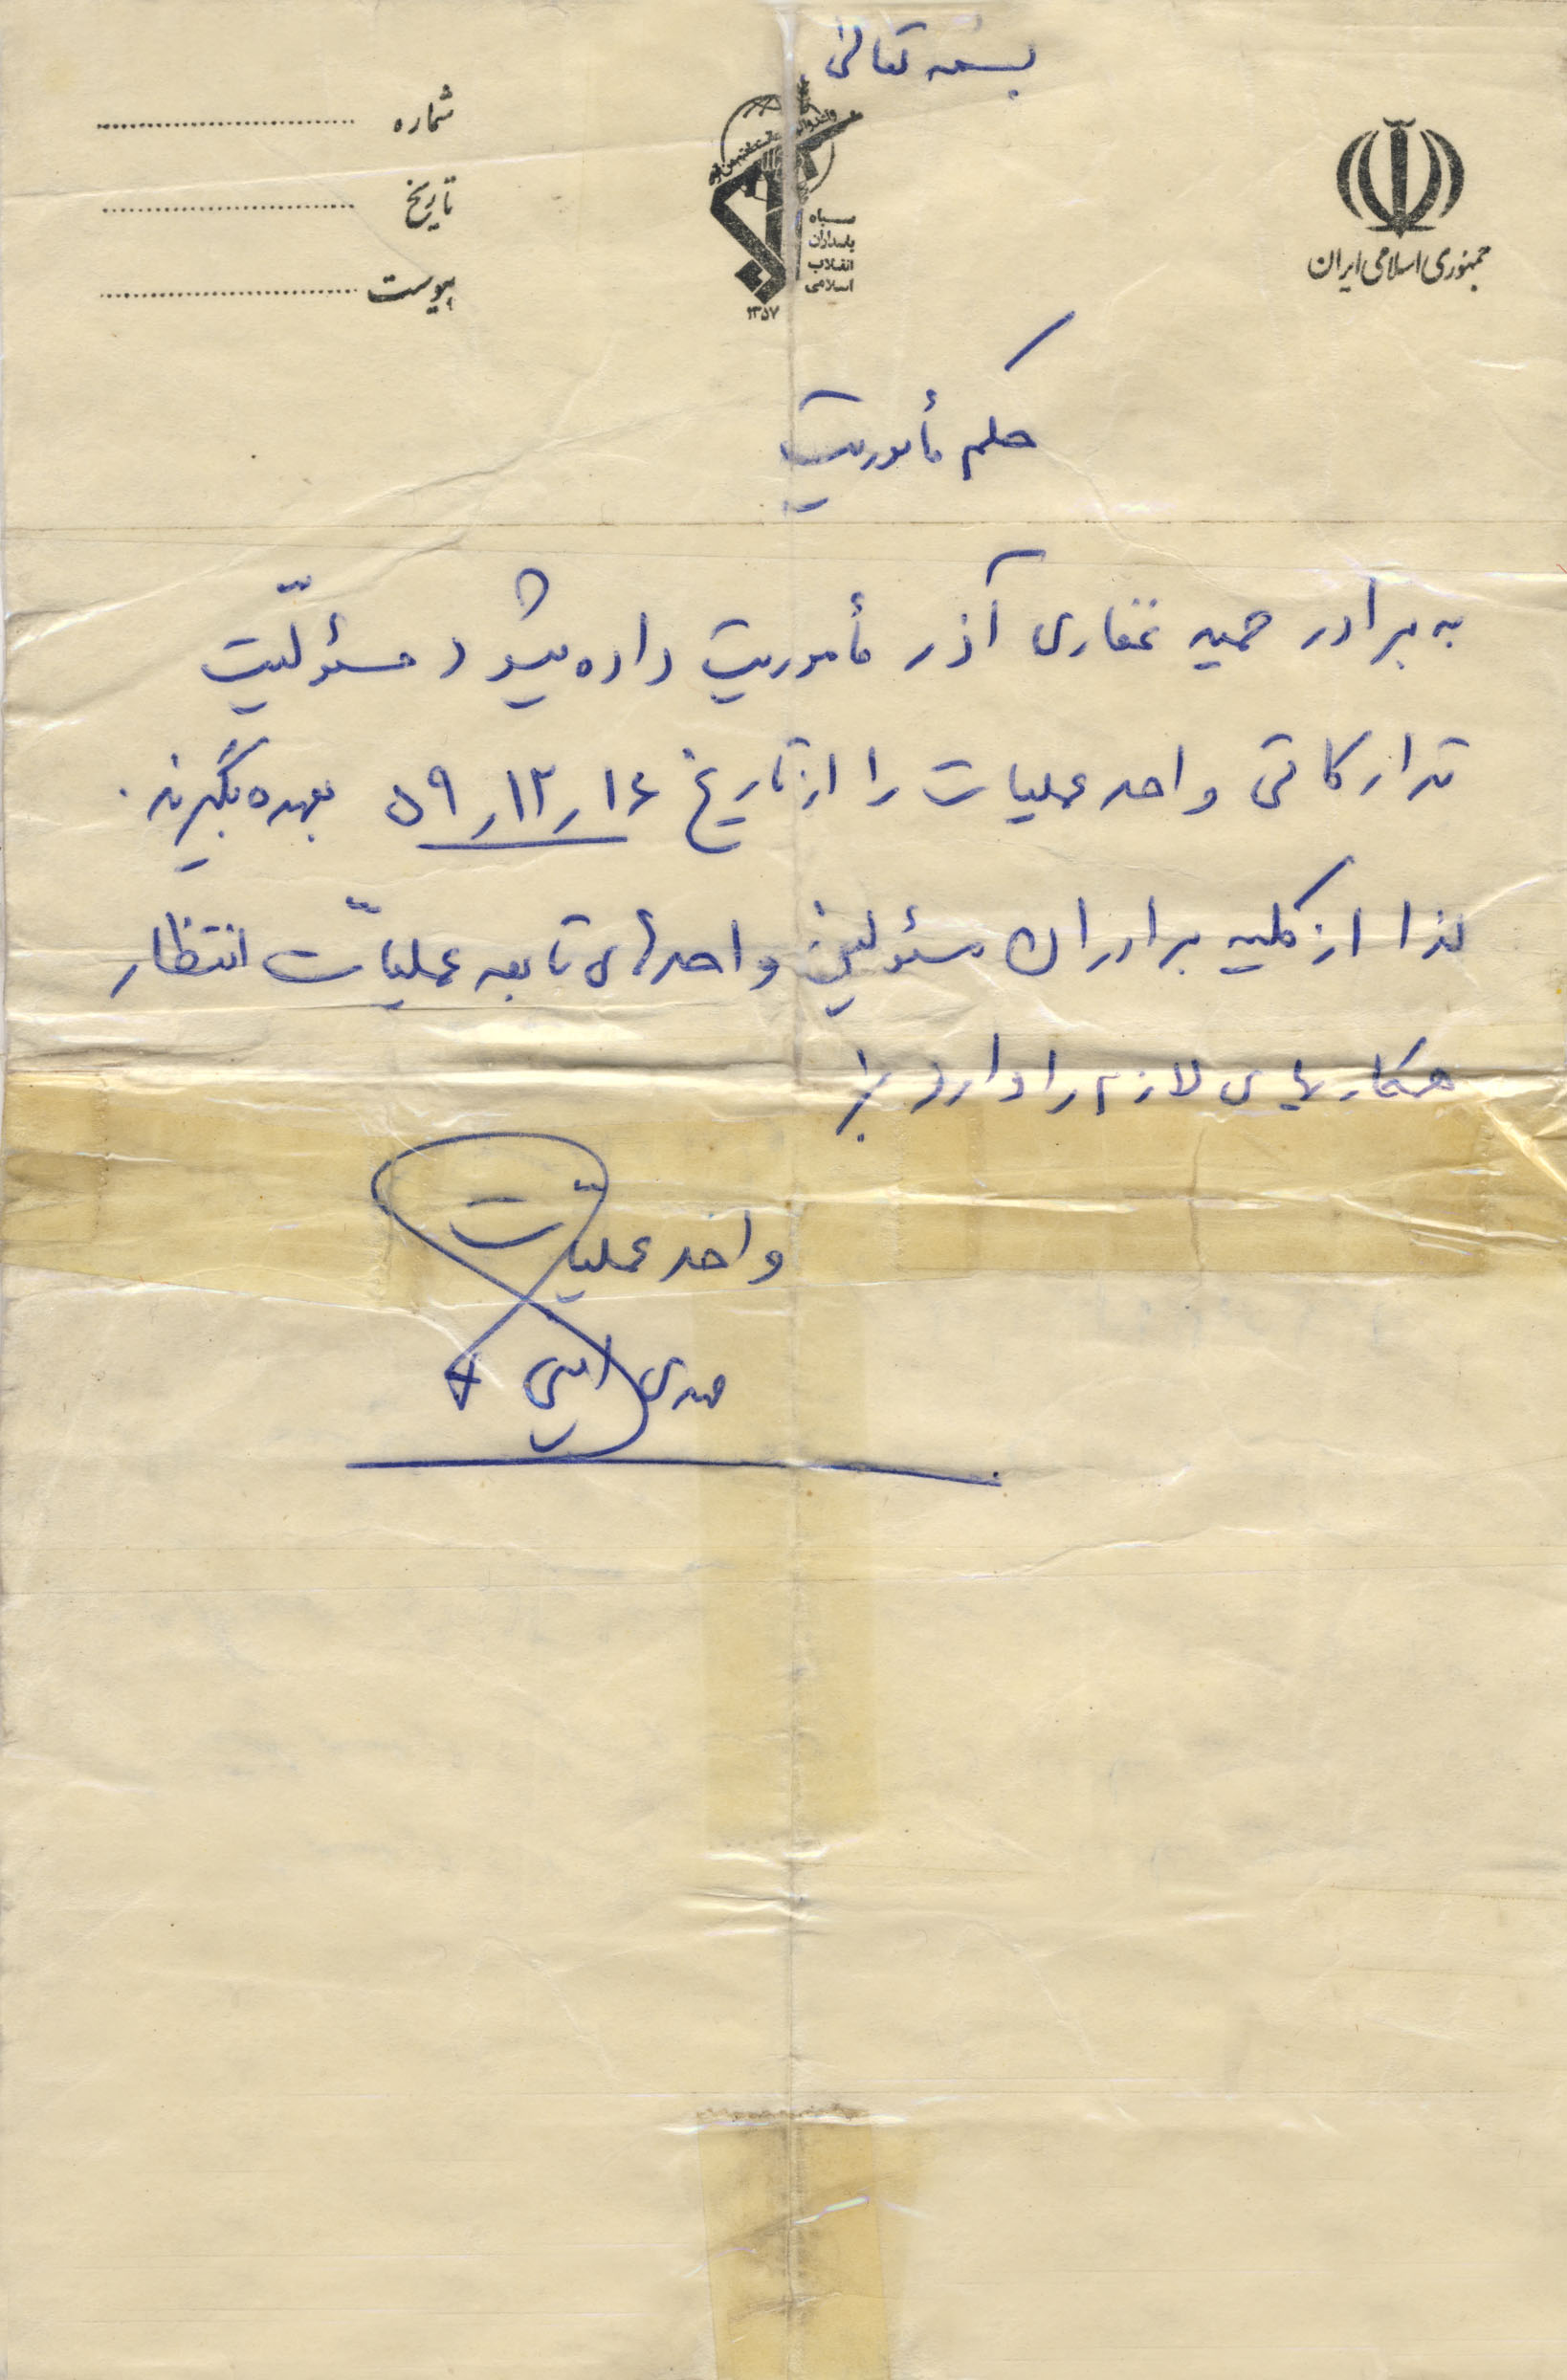 بسمه تعالی
جمهوری اسلامی ایران
سپاه
پاسداران
انقلاب
اسلامی
۱۳۵۷
شماره
تاریخ
پیوست
حکم مأموریت
به برادر حمید غفاری آذر مأموریت داده میشود مسئولیّت
تدارکاتی واحد عملیات را از تاریخ ۵۹٫۱۲٫۱۶ بعهده بگیرند.
لذا از کلیه برادران مسئولین واحدهای تابعه عملیّات انتظار
همکاریهای لازم را دارد
واحد عملیات
مهدی امینی